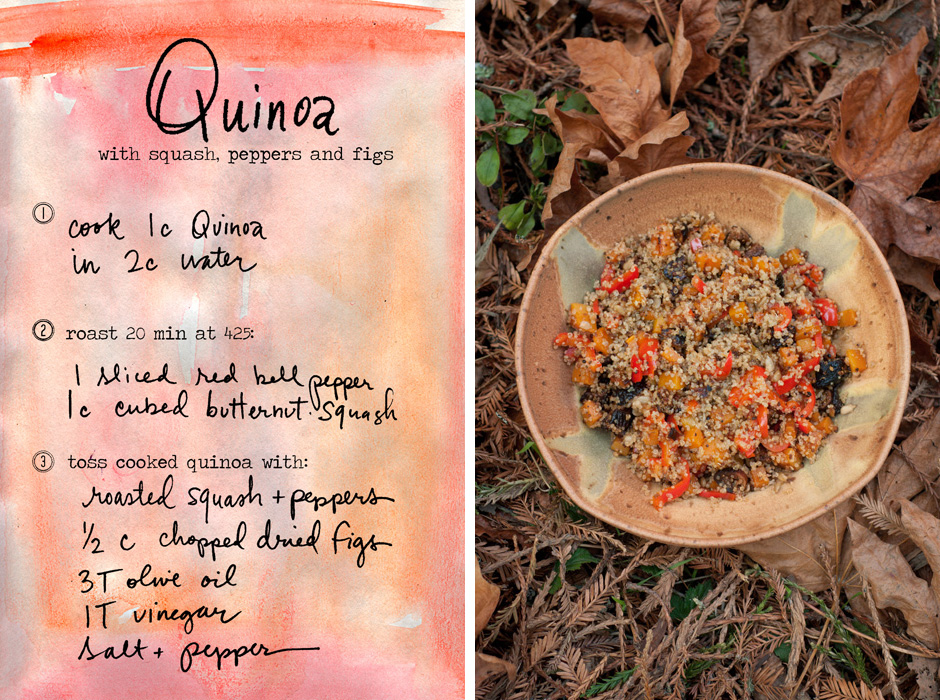 Quinoa
with squash, peppers and figs
1
cook 1c Quinoa
in 2c water
2 roast 20 min at 425:
1 sliced red bell pepper
1c cubed butternut squash
3 toss cooked quinoa with:
roasted squash + peppers
1/2 c chopped dried figs
3T olive oil
1T vinegar
salt + pepper